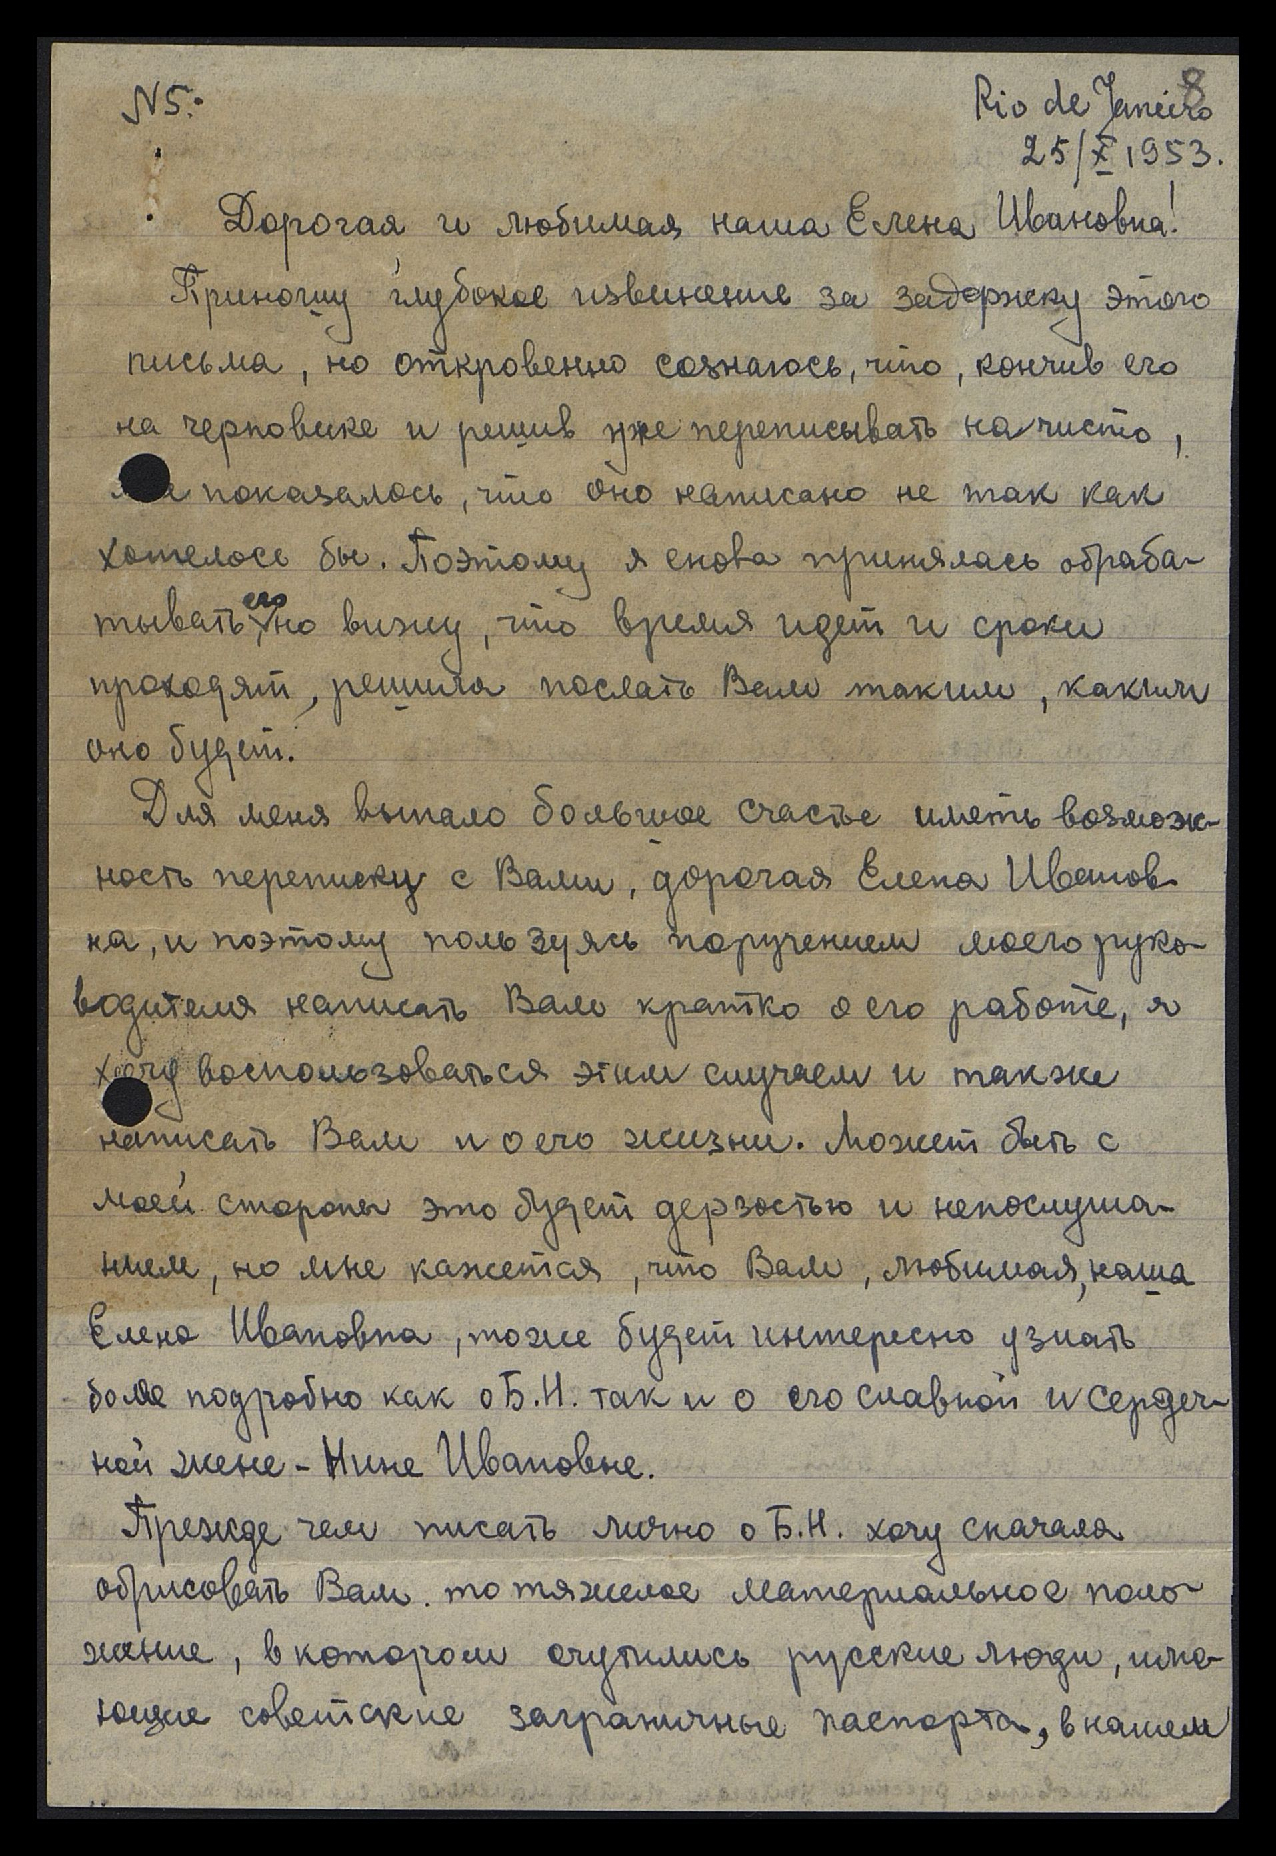 N5.
8
Rio de Janeiro
25/X 1953.
Дорогая и любимая наша Елена Ивановна!
Приношу глубокое извинение за задержку этого
письма, но откровенно сознаюсь, что, кончив его
на черновике и решив уже переписывать на чисто,
показалось, что оно написано не так как
хотелось бы. Поэтому я снова принялась обраба-
тывать его, но вижу, что время идет и сроки
проходят, решила послать Вам таким, каким
оно будет.
Для меня выпало большое счастье иметь возмож-
ность переписку с Вами, дорогая Елена Иванов-
на, и поэтому пользуясь поручением моего руко-
водителя написать Вам кратко о его работе, я
хочу воспользоваться этим случаем и также
написать Вам и о его жизни. Может быть с
моей стороны это будет дерзостью и непослуша-
нием, но мне кажется, что Вам, любимая, наша
Елена Ивановна, тоже будет интересно узнать
более подробно как о Б.Н. так и о его славной и сердеч-
ной жене - Нине Ивановне.
Прежде чем писать лично о Б.Н. хочу сначала
обрисовать Вам то тяжелое материальное поло-
жение, в котором очутились русские люди, име-
ющие советские заграничные паспорта, в нашем